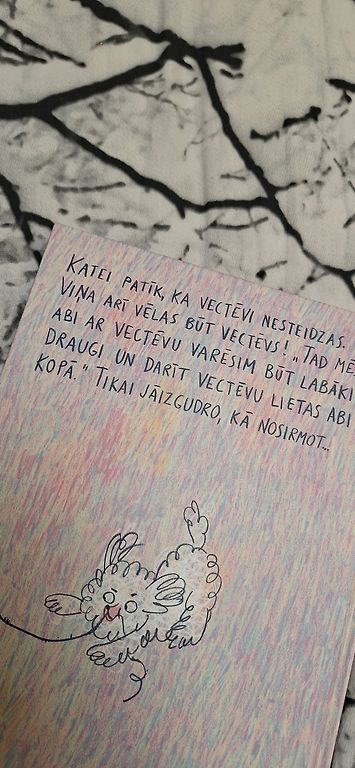 KATEI PATĪK, KA VECTĒVI NESTEIDZAS.
VIŅA ARĪ VĒLAS BŪT VECTĒVS! „TAD MĒS
ABI AR VECTĒVU VARĒSIM BŪT LABĀKI
DRAUGI UN DARĪT VECTĒVU LIETAS ABI
KOPĀ.“ TIKAI JĀIZGUDRO, KĀ NOSIRMOT...